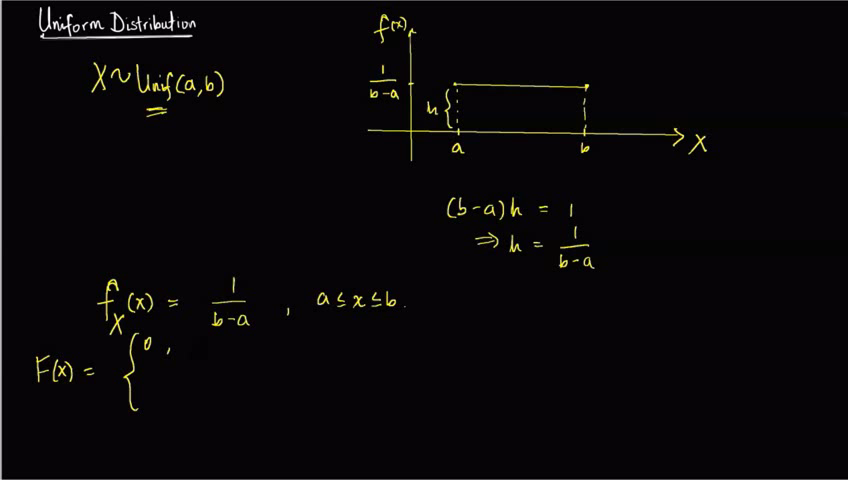 Uniform Distribution
X ~ Unif(a,b)
f(x)
1/(b-a)
h {
a b X
(b-a)h = 1
⇒ h = 1/(b-a)
f_X(x) = 1/(b-a) , a ≤ x ≤ b.
F(x) = { 0 ,